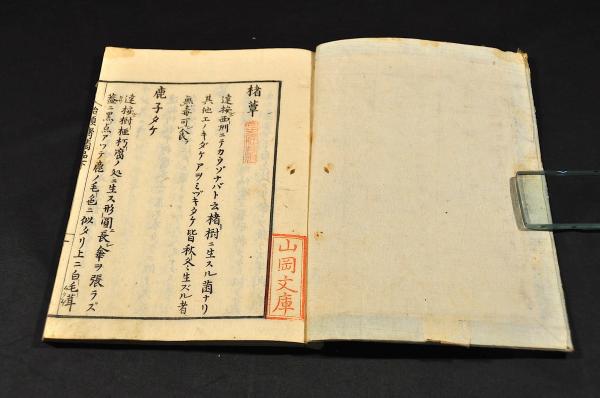 楮蕈
達按西州ニテカウゾナバト云楮樹ニ生スル菌ナリ
其他エノキダケアヲミヅキタケ皆秋冬ニ生ズル者
無毒可食
鹿子タケ
達按樹根朽腐ノ処ニ生ス形圓長傘ヲ張ラズ
蓋ニ黒点アツテ鹿ノ毛色ニ似タリ上ニ白毛茸
山岡文庫